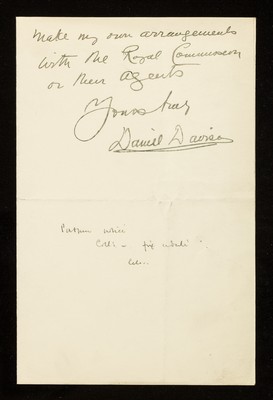 make my own arrangements
with the Royal Commission
or their agents
Yours truly
Daniel Davison